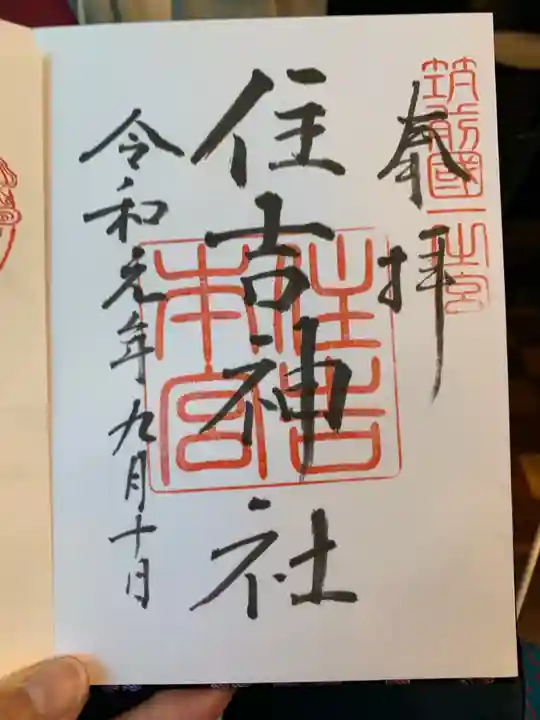 筑前國一之宮
奉拝
住吉神社
住吉
本宮
令和元年九月十日